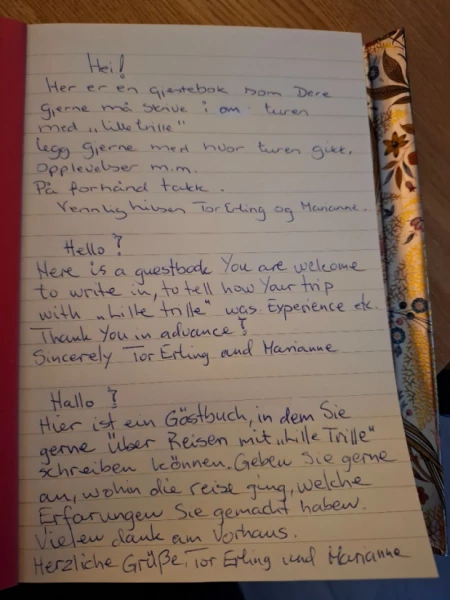 Hei!
Her er en gjestebok som Dere
gjerne må skrive i om turen
med „Lille trille"
Legg gjerne med hvor turen gikk,
opplevelser m.m.
På forhånd takk.
Vennlig hilsen Tor Erling og Marianne.
Hello!
Here is a guestbook You are welcome
to write in, to tell how Your trip
with „Lille trille" was. Experience etc.
Thank You in advance!
Sincerely Tor Erling and Marianne
Hallo!
Hier ist ein Gästbuch, in dem Sie
gerne Über Reisen mit „Lille Trille"
schreiben können. Geben Sie gerne
an, wohin die reise ging, welche
Erfarungen Sie gemacht haben.
Vielen dank am Vorhaus.
Herzliche Grüße, Tor Erling und Marianne